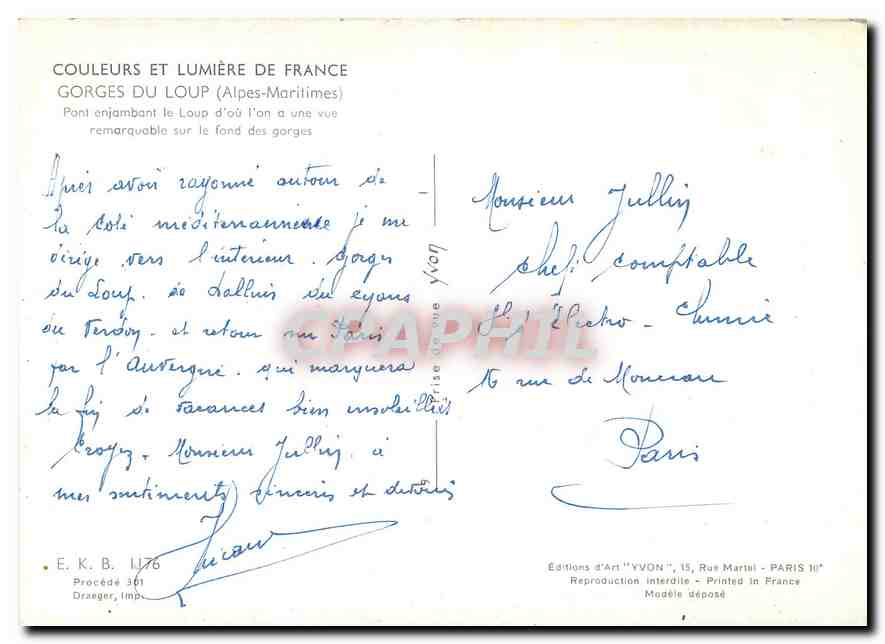 COULEURS ET LUMIÈRE DE FRANCE
GORGES DU LOUP (Alpes-Maritimes)
Pont enjambant le Loup d'où l'on a une vue
remarquable sur le fond des gorges
Après avoir rayonné autour de
la Côte méditerranéenne je me
dirige vers l'intérieur. Gorges
du Loup. de Dalluis du
du Verdon. et retour sur Paris
par l'Auvergne. qui marquera
la fin de vacances bien ensoleillées
Croyez, Monsieur Jullin, à
mes sentiments sincères et dévoués
E. K. B. 1176
Procédé 301
Draeger, Imp.
Prise de vue Yvon
Monsieur Jullin
Chef comptable
Électro-Chimie
16 rue de Monceau
Paris
Éditions d'Art "YVON", 15, Rue Martel - PARIS 10e
Reproduction interdite - Printed in France
Modèle déposé
CPAPHIL